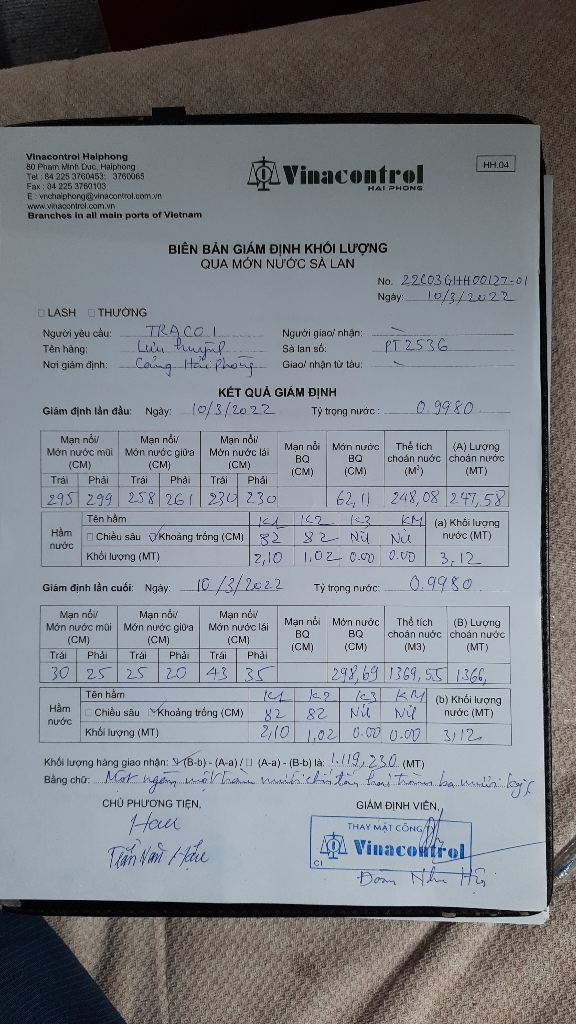 Vinacontrol Haiphong
80 Pham Minh Duc, Haiphong
Tel.: 84 225 3760453; 3760065
Fax : 84 225 3760103
E : vnchaiphong@vinacontrol.com.vn
www.vinacontrol.com.vn
Branches in all main ports of Vietnam
Vinacontrol
HAI PHONG
HH.04
BIÊN BẢN GIÁM ĐỊNH KHỐI LƯỢNG
QUA MỚN NƯỚC SÀ LAN
No. 22C03GHH00127-01
Ngày: 10/3/2022
□ LASH □ THƯỜNG
Người yêu cầu: TRACO 1 Người giao/ nhận:
Tên hàng: Lưu huỳnh Sà lan số: PT2536
Nơi giám định: Cảng Hải Phòng Giao/ nhận từ tàu:
KẾT QUẢ GIÁM ĐỊNH
Giám định lần đầu: Ngày: 10/3/2022 Tỷ trọng nước : 0.9980
Mạn nổi/ Mớn nước mũi (CM) Mạn nổi/ Mớn nước giữa (CM) Mạn nổi/ Mớn nước lái (CM) Mạn nổi BQ (CM) Mớn nước BQ (CM) Thể tích choán nước (M³) (A) Lượng choán nước (MT)
Trái Phải Trái Phải Trái Phải
295 299 258 261 230 230 62,11 248,08 247,58
Hầm nước Tên hầm K1 K2 K3 KM (a) Khối lượng nước (MT)
□ Chiều sâu ☑ Khoảng trống (CM) 82 82 Nil Nil
Khối lượng (MT) 2,10 1,02 0.00 0.00 3,12
Giám định lần cuối: Ngày: 10/3/2022 Tỷ trọng nước: 0.9980
Mạn nổi/ Mớn nước mũi (CM) Mạn nổi/ Mớn nước giữa (CM) Mạn nổi/ Mớn nước lái (CM) Mạn nổi BQ (CM) Mớn nước BQ (CM) Thể tích choán nước (M3) (B) Lượng choán nước (MT)
Trái Phải Trái Phải Trái Phải
30 25 25 20 43 35 298,69 1369,55 1366,
Hầm nước Tên hầm K1 K2 K3 KM (b) Khối lượng nước (MT)
□ Chiều sâu ☑ Khoảng trống (CM) 82 82 Nil Nil
Khối lượng (MT) 2,10 1,02 0.00 0.00 3,12
Khối lượng hàng giao nhận: ☑ (B-b) - (A-a) / □ (A-a) - (B-b) là: 1.119,230 (MT)
Bằng chữ: Một ngàn một trăm mười chín tấn, hai trăm ba mươi kg
CHỦ PHƯƠNG TIỆN, GIÁM ĐỊNH VIÊN,
Hau
Trần Văn Hậu
THAY MẶT CÔNG TY
Vinacontrol
Đoàn Như